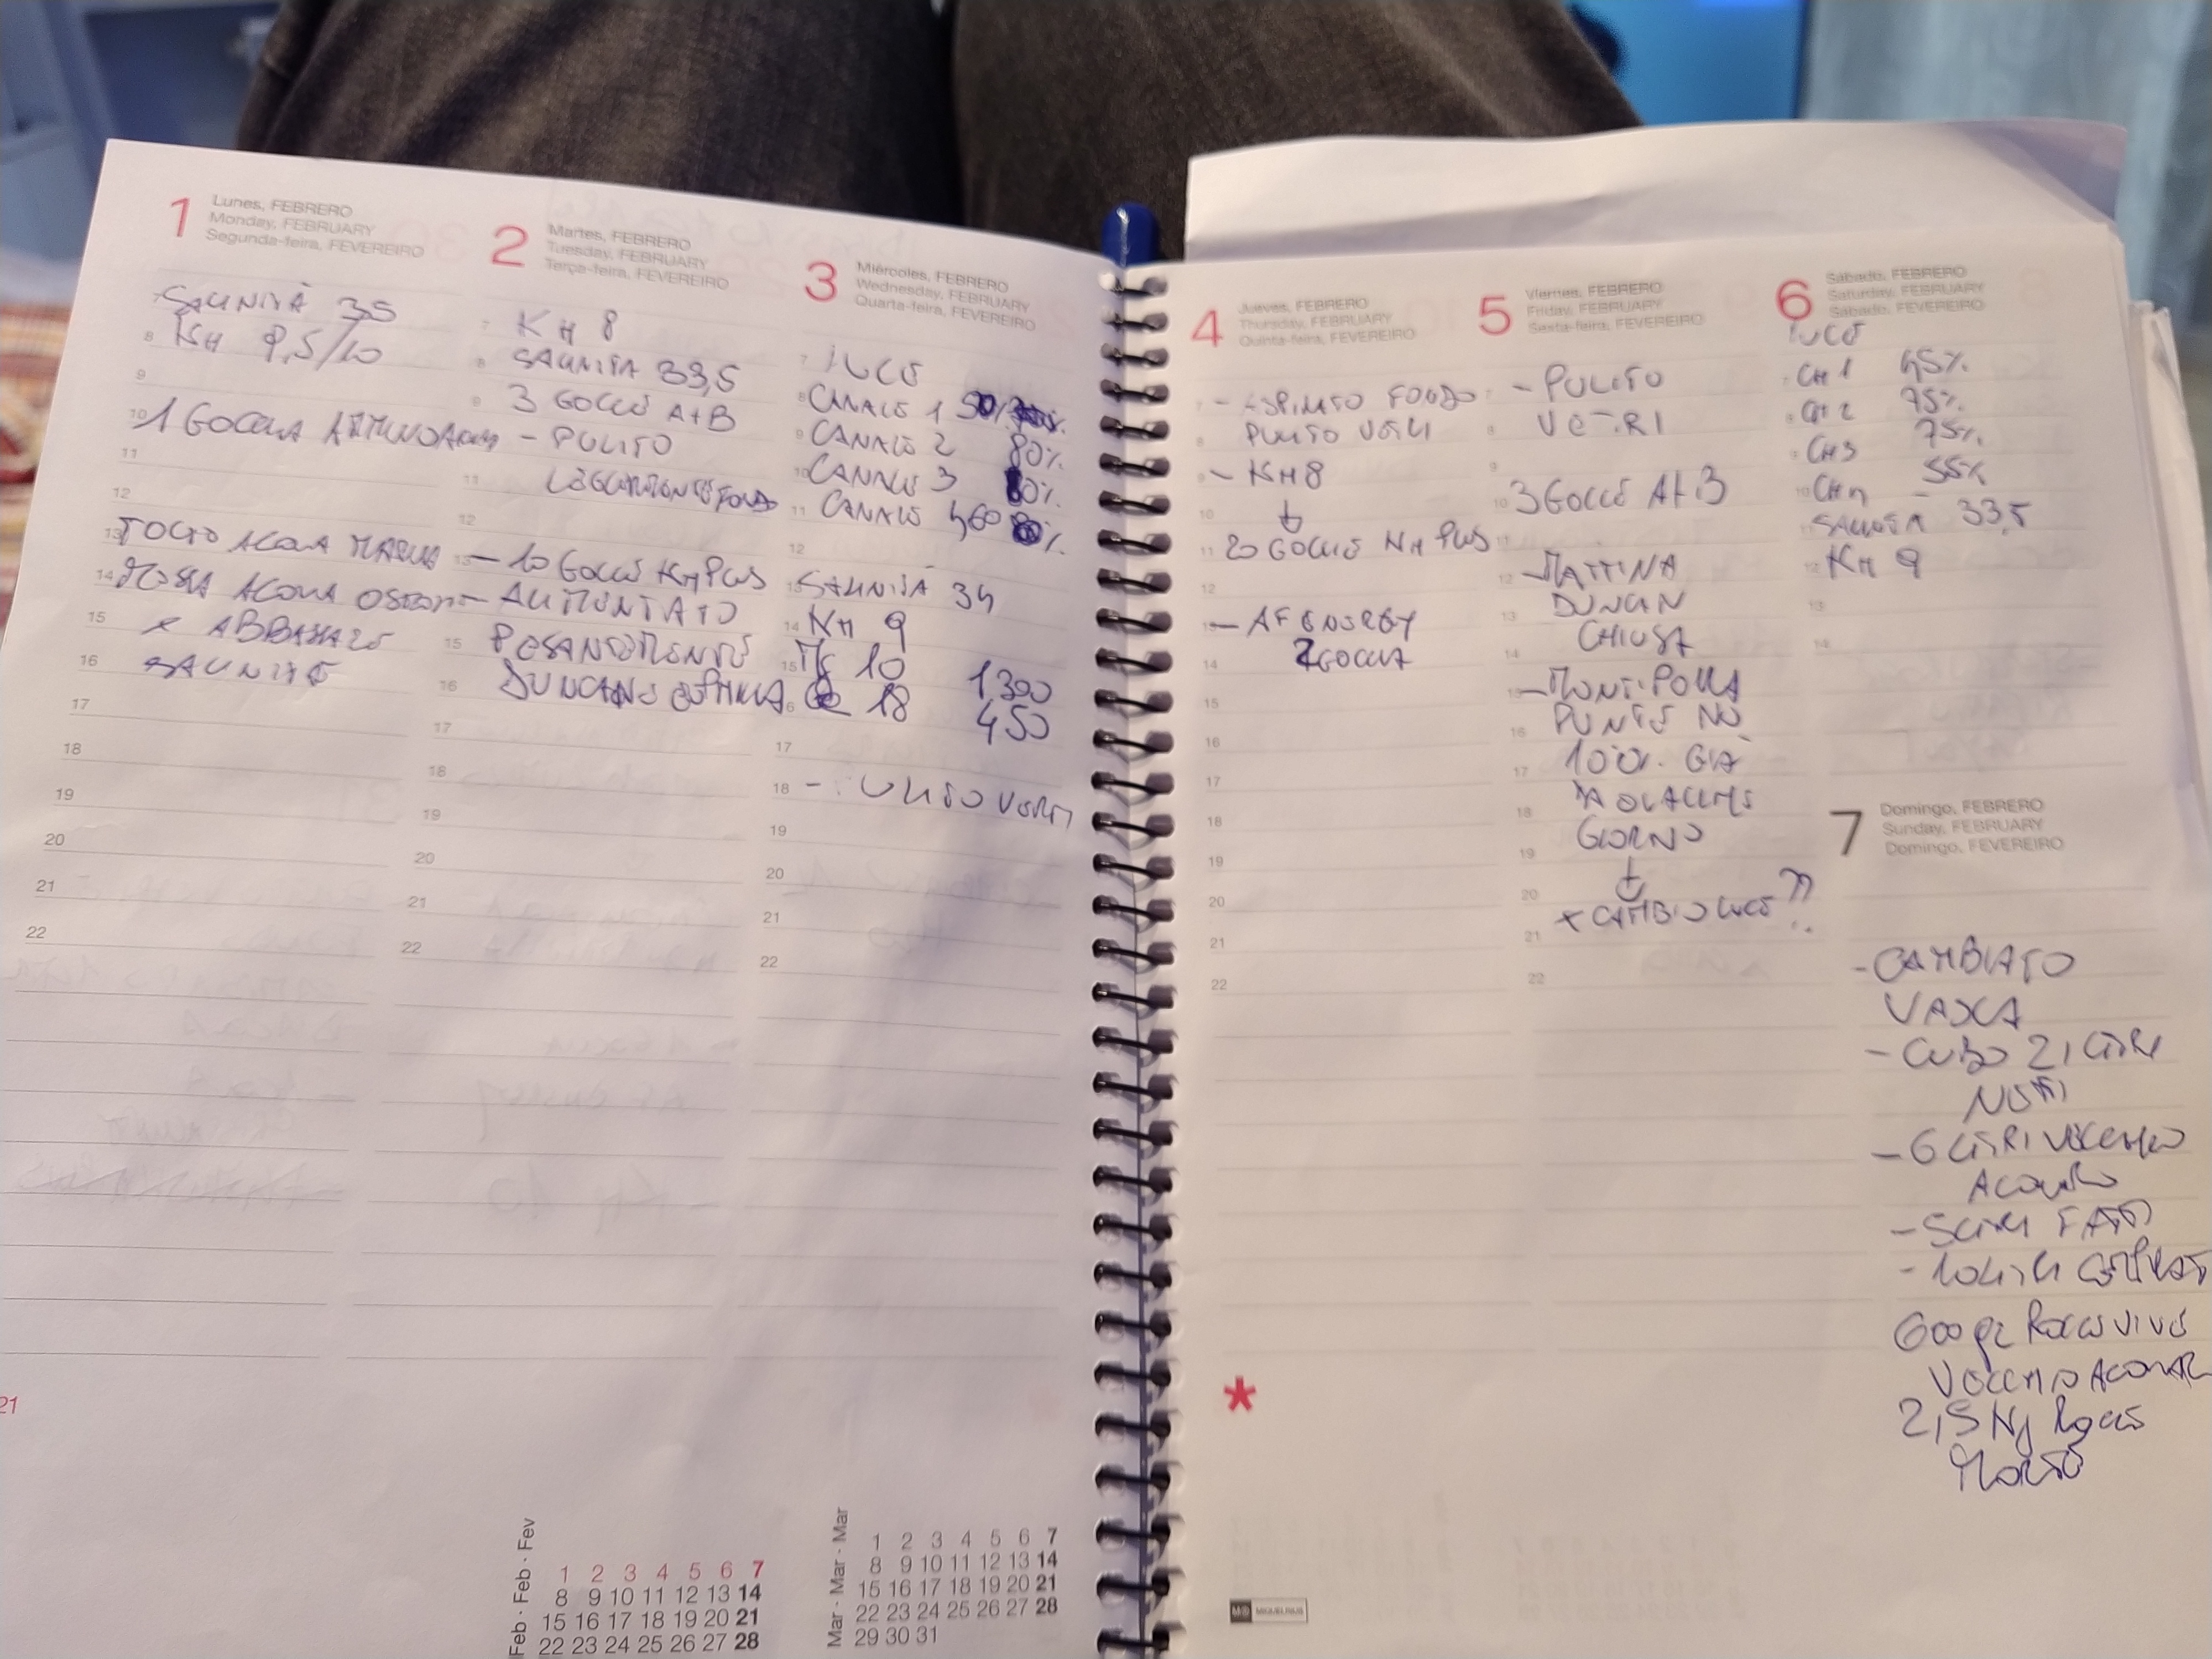 1
Lunes, FEBRERO
Monday, FEBRUARY
Segunda-feira, FEVEREIRO
SALINITÀ 35
8 KH 9,5/10
9
10 1 GOCCIA
11
12
13 TOLTO ACQUA MARINA
14 MESSA ACQUA
15 X ABBASSARE
16 SALINITÀ
17
18
19
20
21
22
2
Martes, FEBRERO
Tuesday, FEBRUARY
Terça-feira, FEVEREIRO
7 KH 8
8 SALINITÀ 33,5
9 3 GOCCE A+B
- PULITO
11 LEGGERMENTE FONDO
12
13 - 10 GOCCE KH PLUS
- ALIMENTATO
15 PESANTEMENTE
16 DUNCAN
17
18
19
20
21
22
3
Miércoles, FEBRERO
Wednesday, FEBRUARY
Quarta-feira, FEVEREIRO
7 LUCE
8 CANALE 1 50%
9 CANALE 2 80%
10 CANALE 3 80%
11 CANALE 4 60%
12
13 SALINITÀ 34
14 KH 9
15 Mg 10 1300
16 Ca 18 450
17
18 - PULITO VETRI
19
20
21
22
4
Jueves, FEBRERO
Thursday, FEBRUARY
Quinta-feira, FEVEREIRO
7 - ASPIRATO FONDO
8 PULITO VETRI
9 - KH 8
10 ↓
11 20 GOCCE KH PLUS
12
13 - AF ENERGY
14 2 GOCCIA
15
16
17
18
19
20
21
22
5
Viernes, FEBRERO
Friday, FEBRUARY
Sexta-feira, FEVEREIRO
7 - PULITO
8 VETRI
9
10 3 GOCCE A+B
11
12 - MATTINA
13 DUNCAN
14 CHIUSA
15 - MONTIPORA
16 PUNTE NO
17 100% GIÀ
18 DA QUALCHE
19 GIORNO
20 ↓
X CAMBIO LUCE ??
21
22
6
Sábado, FEBRERO
Saturday, FEBRUARY
Sábado, FEVEREIRO
LUCE
7 CH 1 45%
8 CH 2 75%
9 CH 3 75%
10 CH 4 55%
11 SALINITÀ 33,5
12 KH 9
13
14
7
Domingo, FEBRERO
Sunday, FEBRUARY
Domingo, FEVEREIRO
- CAMBIATO
VASCA
- CUBO 21 LITRI
NETTI
- 6 LITRI VECCHIO
ACQUARIO
- 5 LITRI FATTI
- 10 LITRI COMPRATI
600 gr ROCCE VIVE
VECCHIO
2,5 Kg ROCCE
MORTE
21
*
Feb · Feb · Fev
1 2 3 4 5 6 7
8 9 10 11 12 13 14
15 16 17 18 19 20 21
22 23 24 25 26 27 28
Mar · Mar · Mar
1 2 3 4 5 6 7
8 9 10 11 12 13 14
15 16 17 18 19 20 21
22 23 24 25 26 27 28
29 30 31
MIQUELRIUS